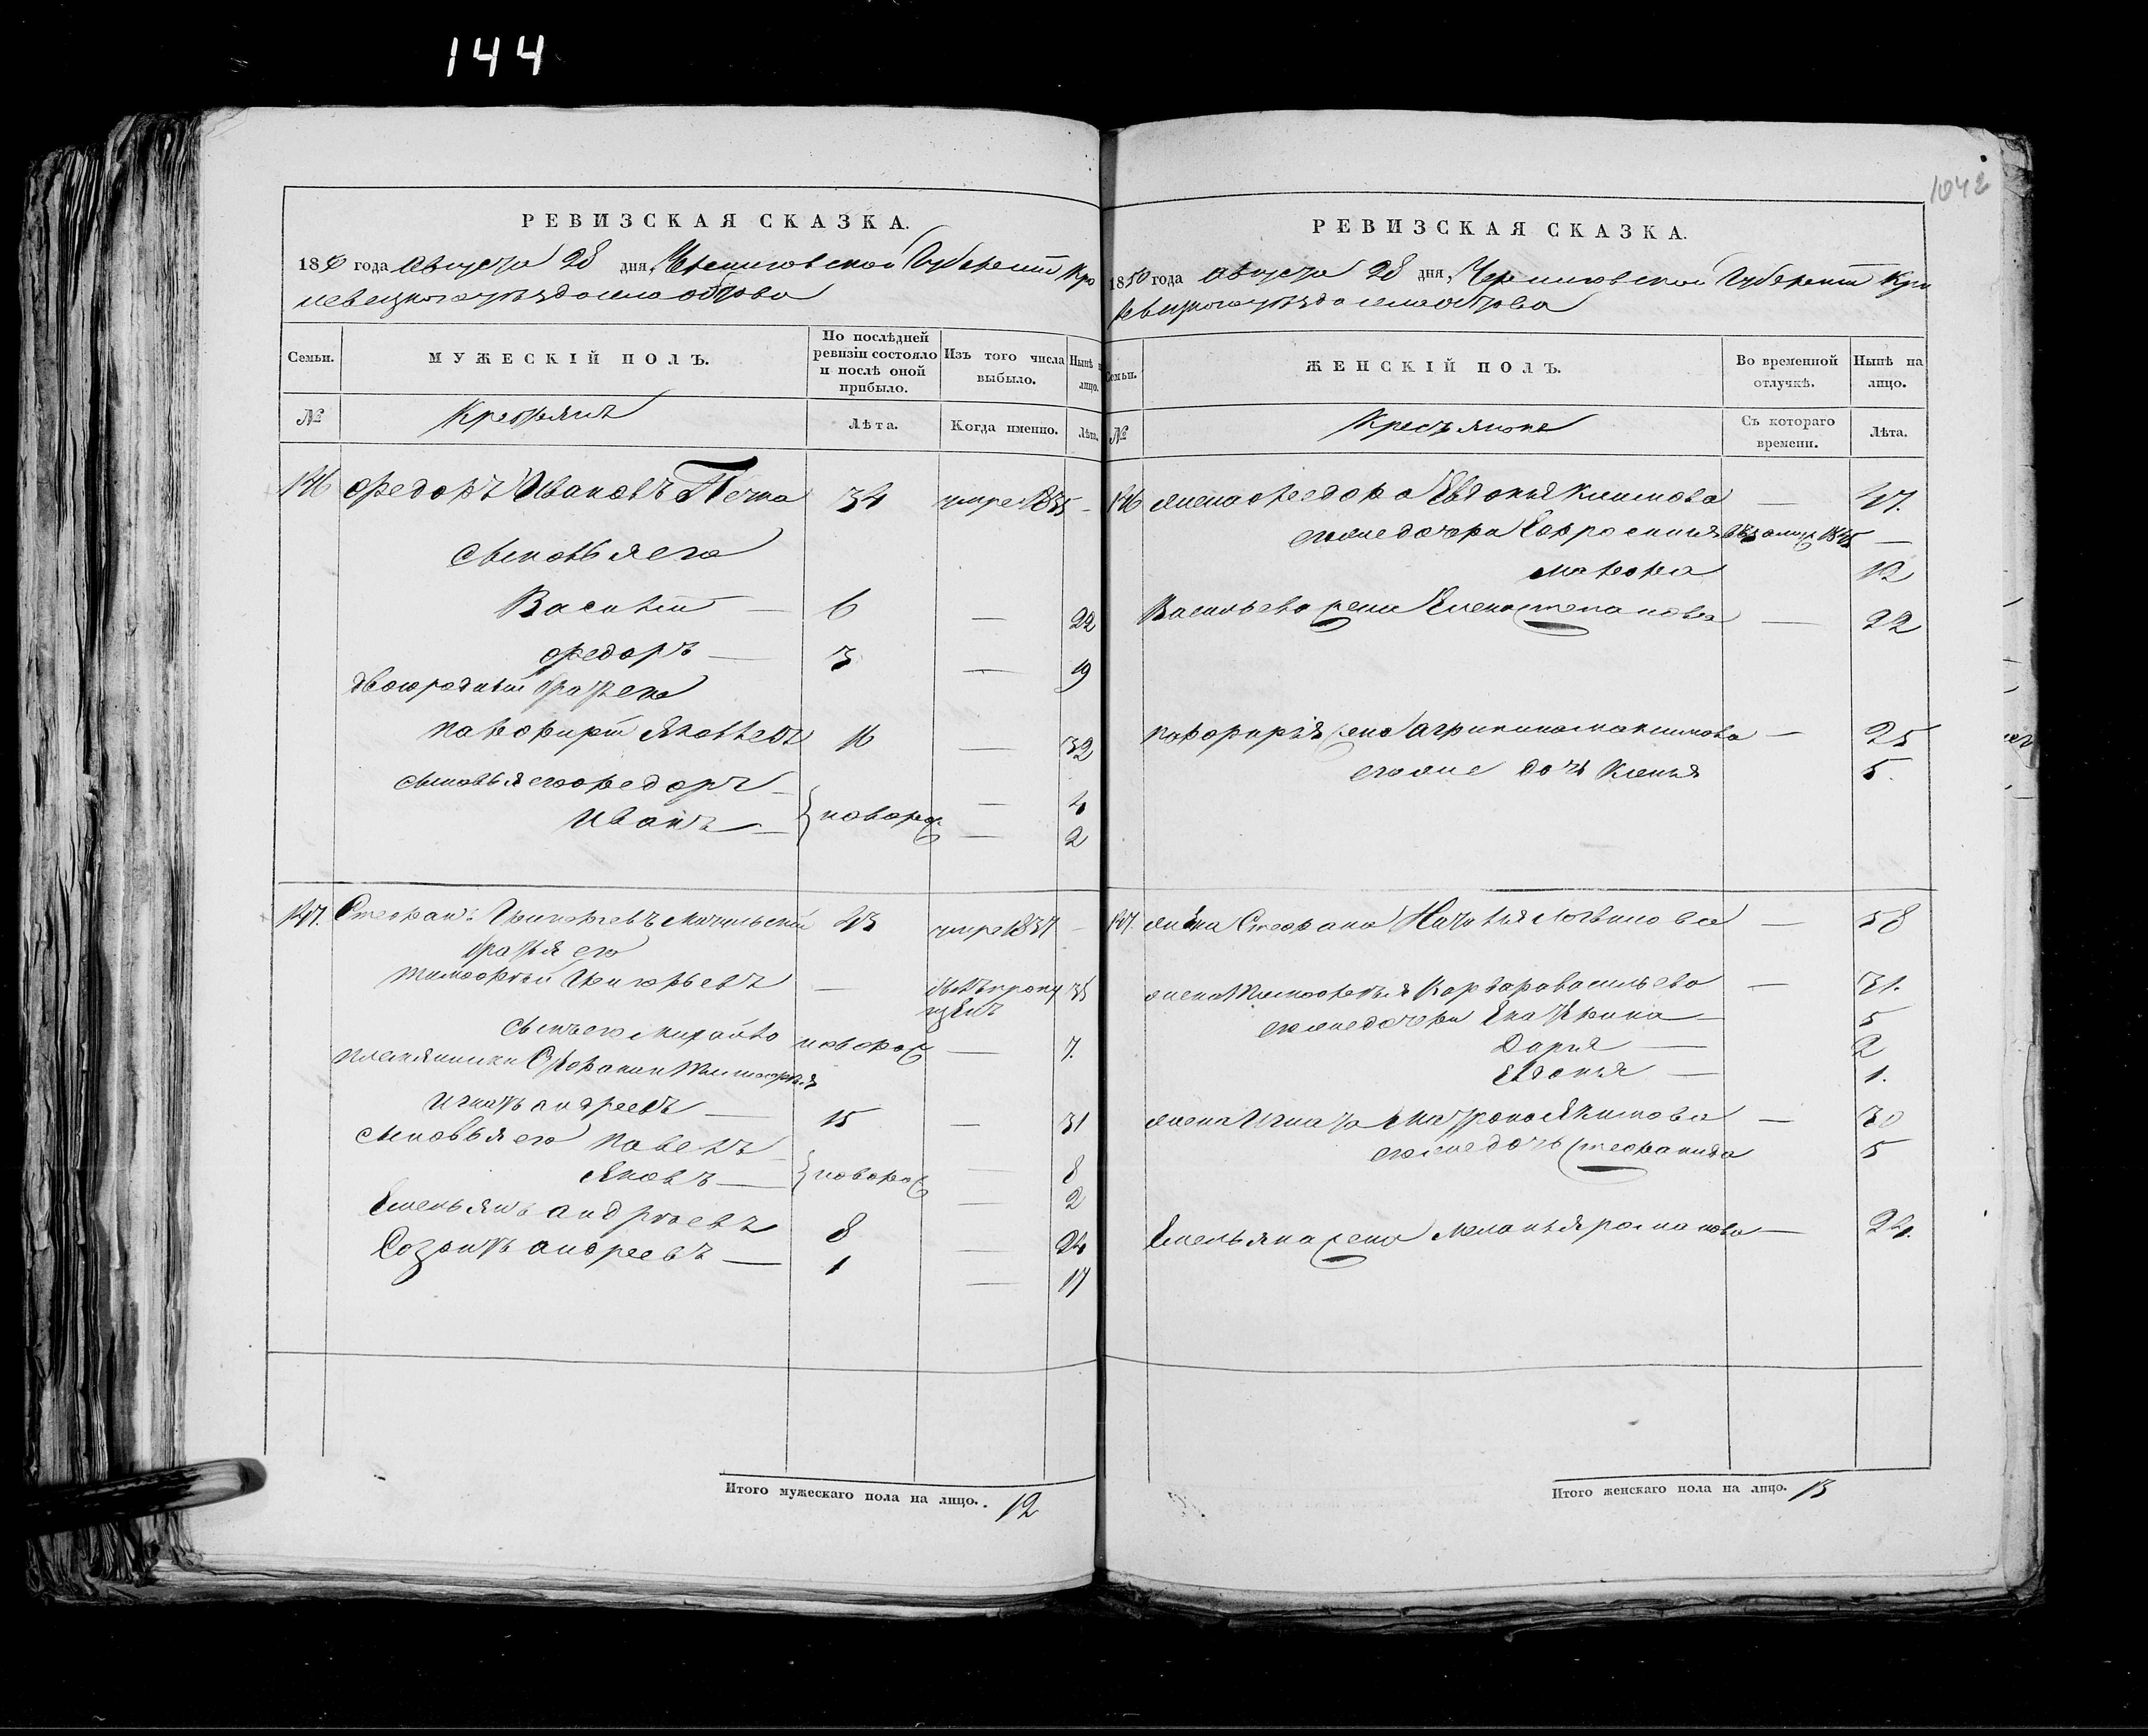 144
1042
РЕВИЗСКАЯ СКАЗКА.
1850 года Августа 28 дня, Черниговской Губернии Кро
левецкого уезда села
Семьи.
МУЖЕСКІЙ ПОЛЪ.
По послѣдней ревизіи состояло и послѣ оной прибыло.
Изъ того числа выбыло.
Нынѣ на лицо.
№
Крестьянъ
Лѣта.
Когда именно.
Лѣта.
146 Федоръ Ивановъ 34 умре 1835 -
сыновья его
Василій — 6 — 22
Федоръ — 3 — 19
двоюродный братъ его
Порфирій Яковлевъ 16 — 32
сыновья его Федоръ — новорож — 4
Иванъ — — 2
147. Стефанъ Григорьевъ 43 умре 1837 -
братья его
Тимофѣй Григорьевъ — 35
сынъ его Михайло новорож — 7.
племянники Стефана и Тимофѣя
Игнатъ Андреевъ — 15 — 31
сыновья его Павелъ — новорож — 8
Яковъ — — 2
Емельянъ Андреевъ 8 — 24
Созонтъ Андреевъ — 1 — 17
Итого мужескаго пола на лицо. . 12
РЕВИЗСКАЯ СКАЗКА.
1850 года Августа 28 дня, Черниговской Губерніи Кро
левецкого уезда села
Семьи.
ЖЕНСКІЙ ПОЛЪ.
Во временной отлучкѣ.
Нынѣ на лицо.
№
Крестьянка
Съ котораго времени.
Лѣта.
146 жена Федора Евдокія Климова — 47.
его же дочери Ефросинія 1845 —
12
Васильева жена Елена Степанова — 22
Порфирія жена Агрипина Максимова — 25
его же дочь Ксенія 5.
147. жена Стефана Наталія Логвинова — 58
жена Тимофѣя Варвара Васильева — 31.
его же дочери Екатерина — 5
Дарія — 2
Евдокія — 1.
жена Игната Матрона Якимова — 30
его же дочь Стефанида 5
Емельяна жена Меланія Романова — 24.
Итого женскаго пола на лицо. 13